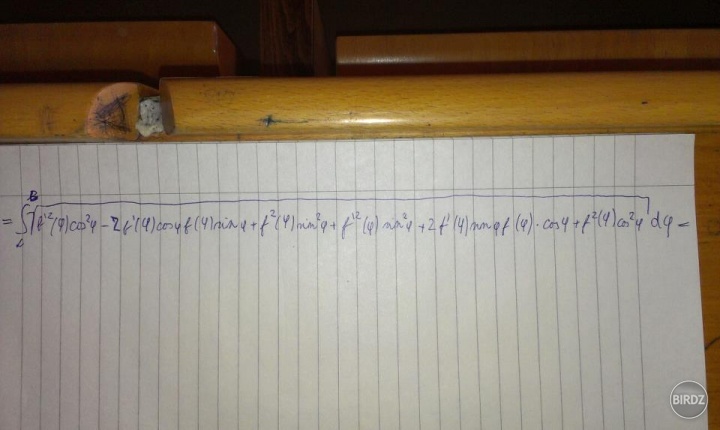 = ∫_A^B √(f'²(φ)cos²φ - 2f'(φ)cosφf(φ)sinφ + f²(φ)sin²φ + f'²(φ)sin²φ + 2f'(φ)sinφf(φ)·cosφ + f²(φ)cos²φ) dφ =
BIRDZ